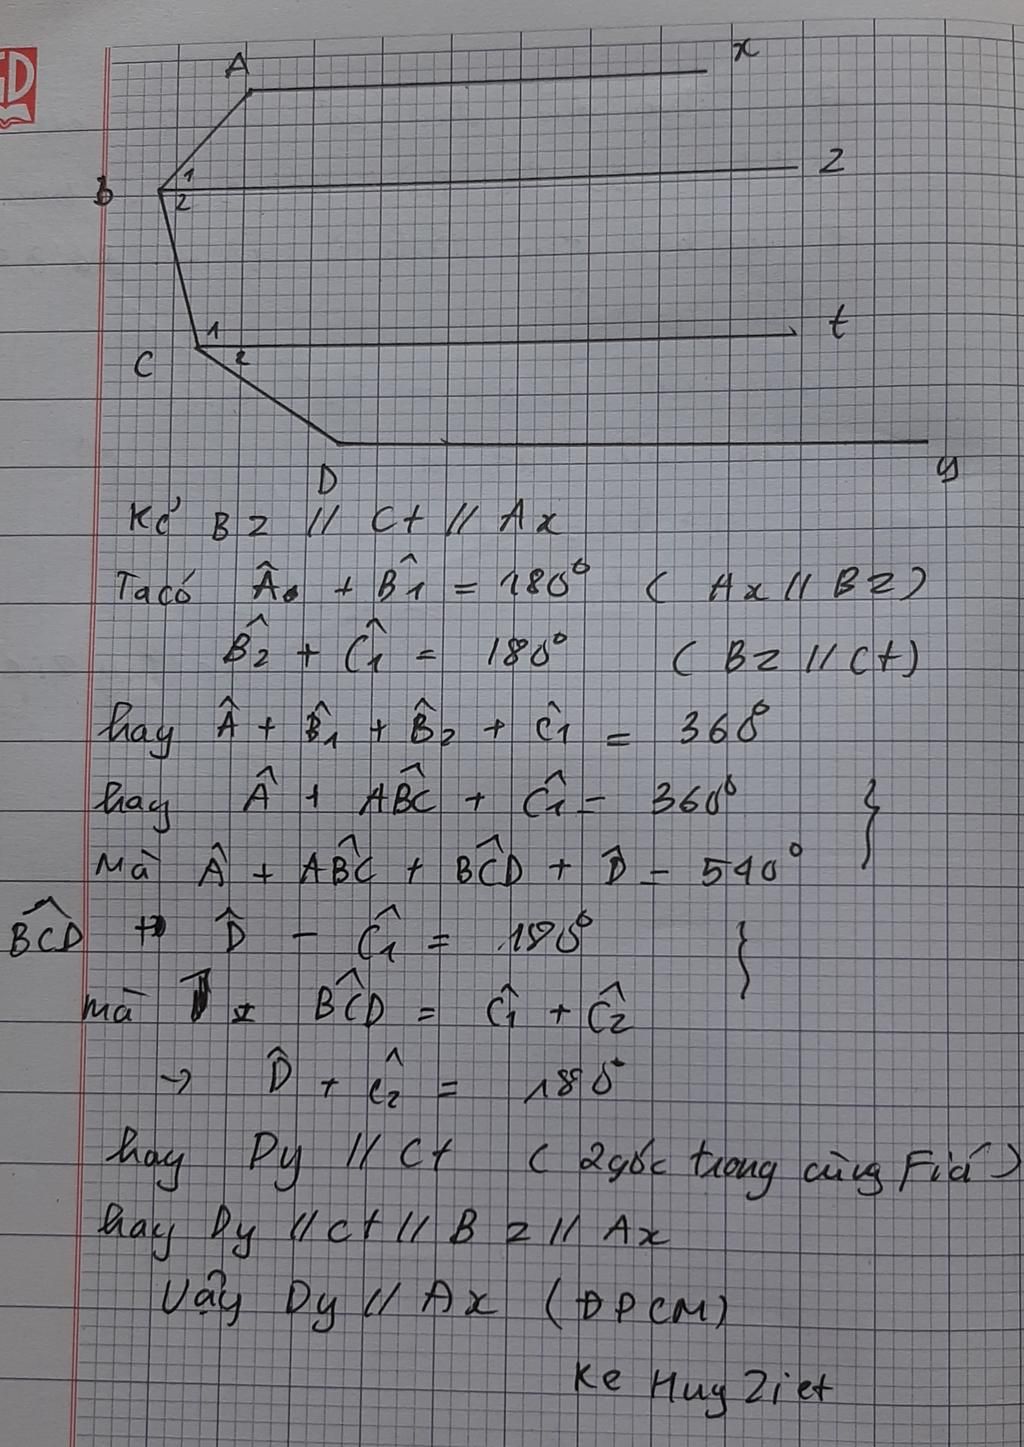 GD
A
x
B
1
2
z
C
1
2
t
D
y
Kẻ Bz // Ct // Ax
Ta có Â + B̂1 = 180° ( Ax // Bz )
B̂2 + Ĉ1 = 180° ( Bz // Ct )
hay Â + B̂1 + B̂2 + Ĉ1 = 360°
hay Â + AB̂C + Ĉ1 = 360° }
Mà Â + AB̂C + BĈD + D̂ = 540°
BĈD + D̂ - Ĉ1 = 180° }
mà BĈD = Ĉ1 + Ĉ2
→ D̂ + Ĉ2 = 180°
hay Dy // Ct ( 2 góc trong cùng Fiá )
hay Dy // Ct // Bz // Ax
Vậy Dy // Ax (ĐPCM)
Ke Huy Ziet